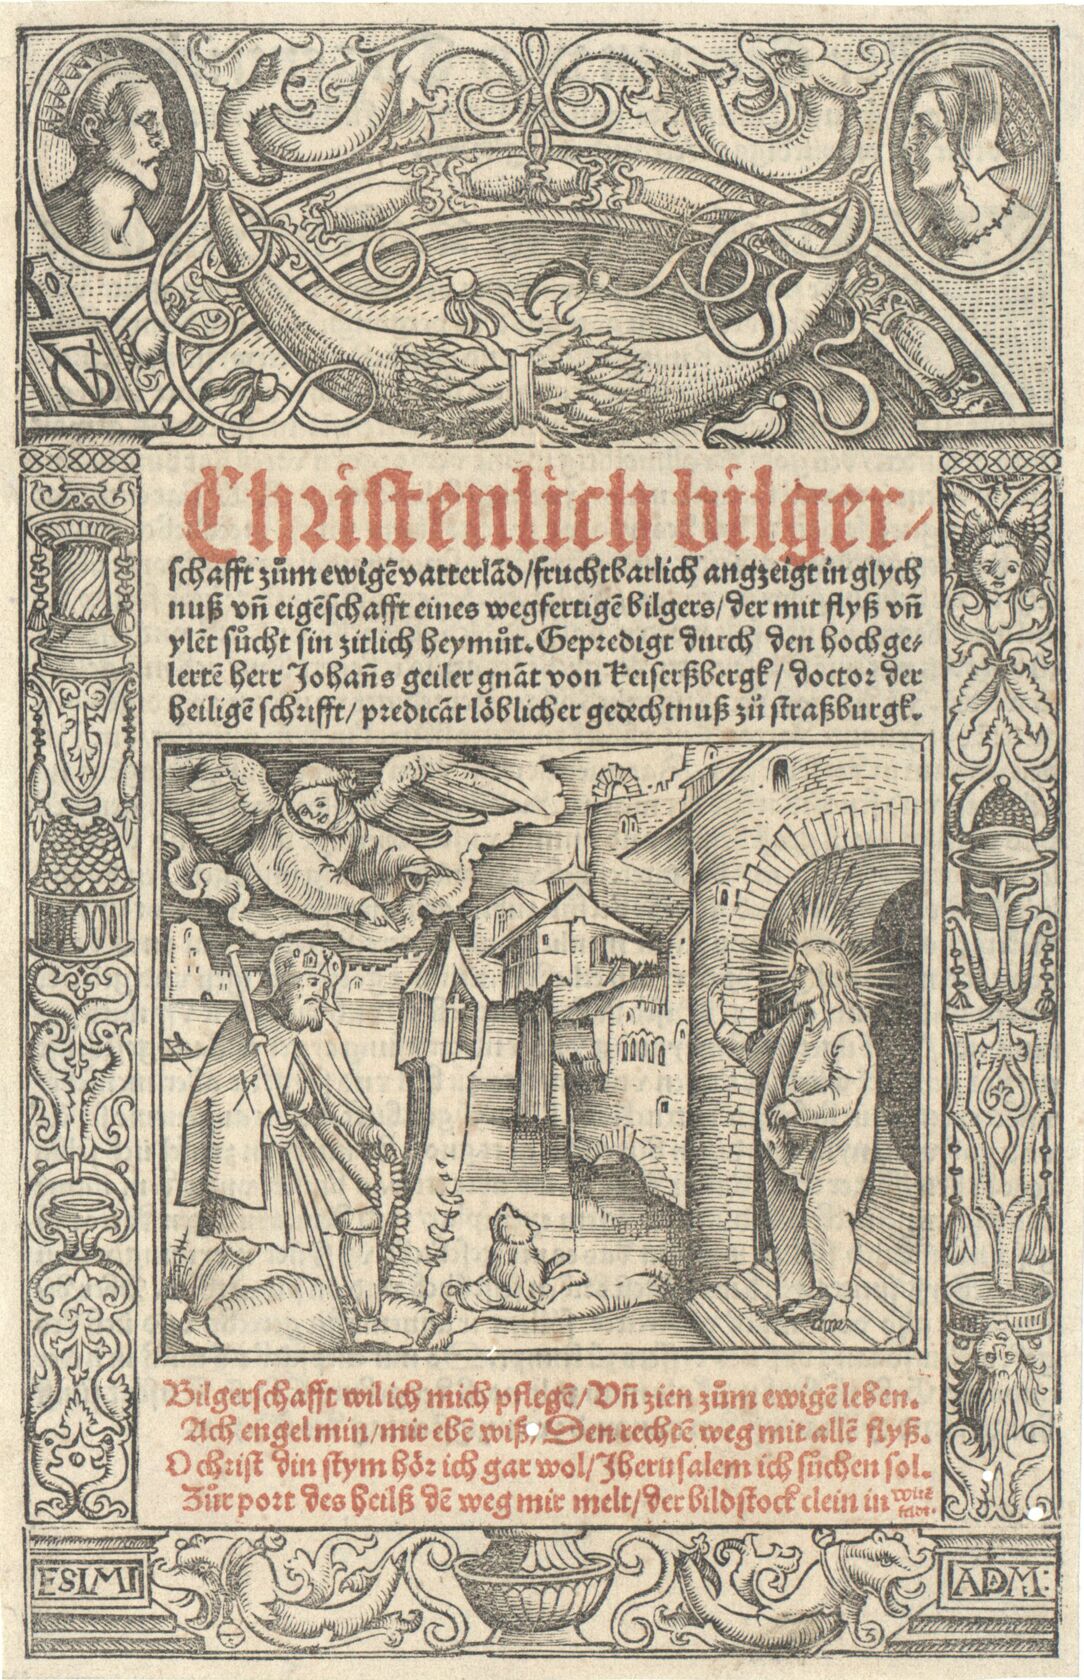 VG
Christenlich bilger/
schafft zům ewigē vatterlād/fruchtbarlich angzeigt in glych
nuß vn̄ eigēschafft eines wegfertigē bilgers/der mit flyß vn̄
ylēt sůcht sin zitlich heymůt. Gepredigt durch den hochge⸗
lertē herr Johan̄s geiler gnāt von Keiserßbergk/ doctor der
heiligē schrifft/ predicāt löblicher gedechtnuß zů straßburgk.
Bilgerschafft wil ich mich pflegē/ Vn̄ zien zům ewigē leben.
Ach engel min/mir ebē wiß/ Den rechtē weg mit allē flyß.
O christ din stym hör ich gar wol/Jherusalem ich sůchen sol.
Zůr port des heilß dē weg mir melt/der bildstock clein in witē
feldt.
ESIMI
ADM: